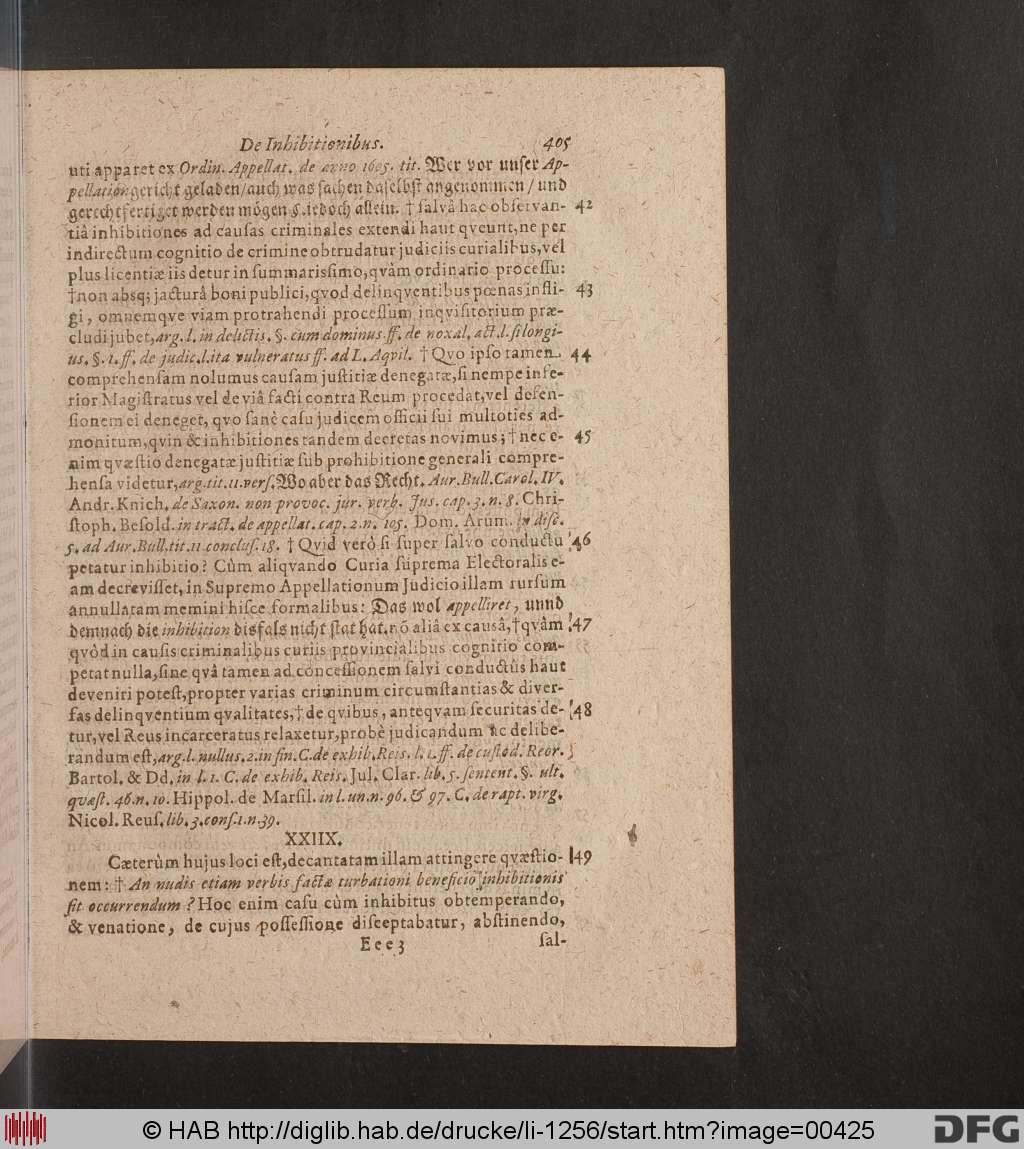 De Inhibitionibus. 405
uti apparet ex Ordin. Appellat. de anno 1605. tit. Wer vor unser Ap-
pellationgericht geladen/auch was sachen daselbst angenommen / und
gerechtfertiget werden mögen §. iedoch allein. † salvâ hac observan- 42
tiâ inhibitiones ad causas criminales extendi haut qveunt, ne per
indirectum cognitio de crimine obtrudatur judiciis curialibus, vel
plus licentiæ iis detur in summarissimo, qvàm ordinario processu:
†non absq; jacturâ boni publici, qvod delinqventibus pœnas infli- 43
gi, omnemqve viam protrahendi processum inqvisitorium præ-
cludi jubet, arg. l. in delictis. §. cum dominus ff. de noxal. act. l. si longi-
us. §. 1. ff. de judic. l. ita vulneratus ff. ad L. Aqvil. † Qvo ipso tamen 44
comprehensam nolumus causam justitiæ denegatæ, si nempe infe-
rior Magistratus vel de viâ facti contra Reum procedat, vel defen-
sionem ei deneget, qvo sanè casu judicem officii sui multoties ad-
monitum, qvin & inhibitiones tandem decretas novimus; † nec e- 45
nim qvæstio denegatæ justitiæ sub prohibitione generali compre-
hensa videtur, arg. tit. 11. vers. Wo aber das Recht. Aur. Bull. Carol. IV.
Andr. Knich. de Saxon. non provoc. jur. verb. Jus. cap. 3. n. 8. Chri-
stoph. Besold. in tract. de appellat. cap. 2. n. 105. Dom. Arum. in disc.
5. ad Aur. Bull. tit. 11 conclus. 18. † Qvid verò si super salvo conductu 46
petatur inhibitio? Cùm aliqvando Curia suprema Electoralis e-
am decrevisset, in Supremo Appellationum Judicio illam rursum
annullatam memini hisce formalibus: Das wol appelliret, unnd
demnach die inhibition disfals nicht stat hat. nō aliâ ex causâ, †qvàm 47
qvòd in causis criminalibus curiis provincialibus cognitio com-
petat nulla, sine qvâ tamen ad concessionem salvi conductûs haut
deveniri potest, propter varias criminum circumstantias & diver-
sas delinqventium qvalitates, † de qvibus, anteqvam securitas de- 48
tur, vel Reus incarceratus relaxetur, probè judicandum ac delibe-
randum est, arg. l. nullus. 2. in fin. C. de exhib. Reis. l. 1. ff. de custod. Reor.
Bartol. & Dd. in l. 1. C. de exhib. Reis. Jul. Clar. lib. 5. sentent. §. ult.
qvæst. 46. n. 10. Hippol. de Marsil. in l. un. n. 96. & 97. C. de rapt. virg.
Nicol. Reus. lib. 3. cons. 1. n. 39.
XXIIX.
Cæterùm hujus loci est, decantatam illam attingere qvæstio- 49
nem: † An nudis etiam verbis factæ turbationi beneficio inhibitionis
sit occurrendum? Hoc enim casu cùm inhibitus obtemperando,
& venatione, de cujus possessione disceptabatur, abstinendo,
Eee3 sal-
© HAB http://diglib.hab.de/drucke/li-1256/start.htm?image=00425
DFG